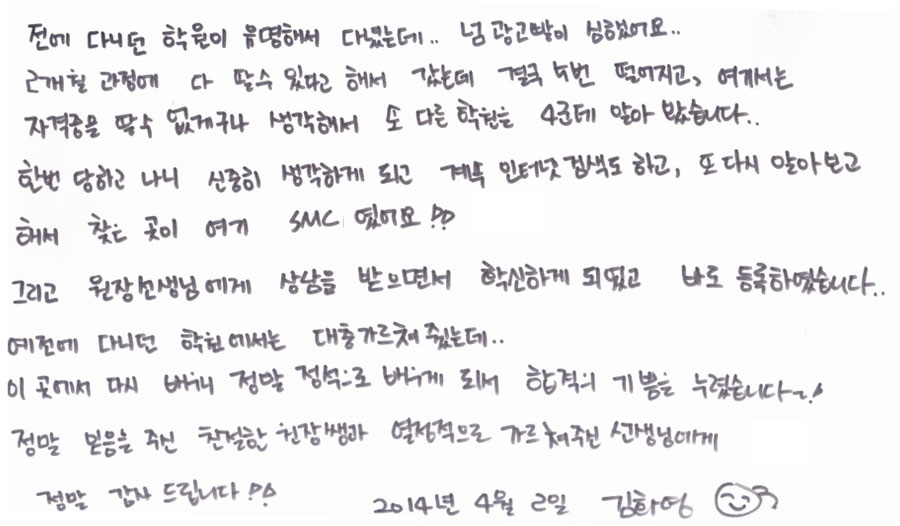 전에 다니던 학원이 유명해서 다녔는데.. 넘 광고빨이 심했어요..
2개월 과정에 다 딸수 있다고 해서 갔는데 결국 4번 떨어지고, 여기서는
자격증을 딸수 없겠구나 생각해서 또 다른 학원을 4군데 알아 봤습니다..
한번 당하고 나니 신중히 생각하게 되고 계속 인터넷 검색도 하고, 또 다시 알아보고
해서 찾은 곳이 여기 SMC 였어요!!
그리고 원장선생님에게 상담을 받으면서 확신하게 되었고 바로 등록하였습니다..
예전에 다니던 학원에서는 대충가르쳐 줬는데..
이 곳에서 다시 배우니 정말 정석으로 배우게 되서 합격의 기쁨을 누렸습니다~!
정말 믿음을 주신 친절한 원장쌤과 열정적으로 가르쳐주신 선생님에게
정말 감사 드립니다!!
2014년 4월 2일 김하영